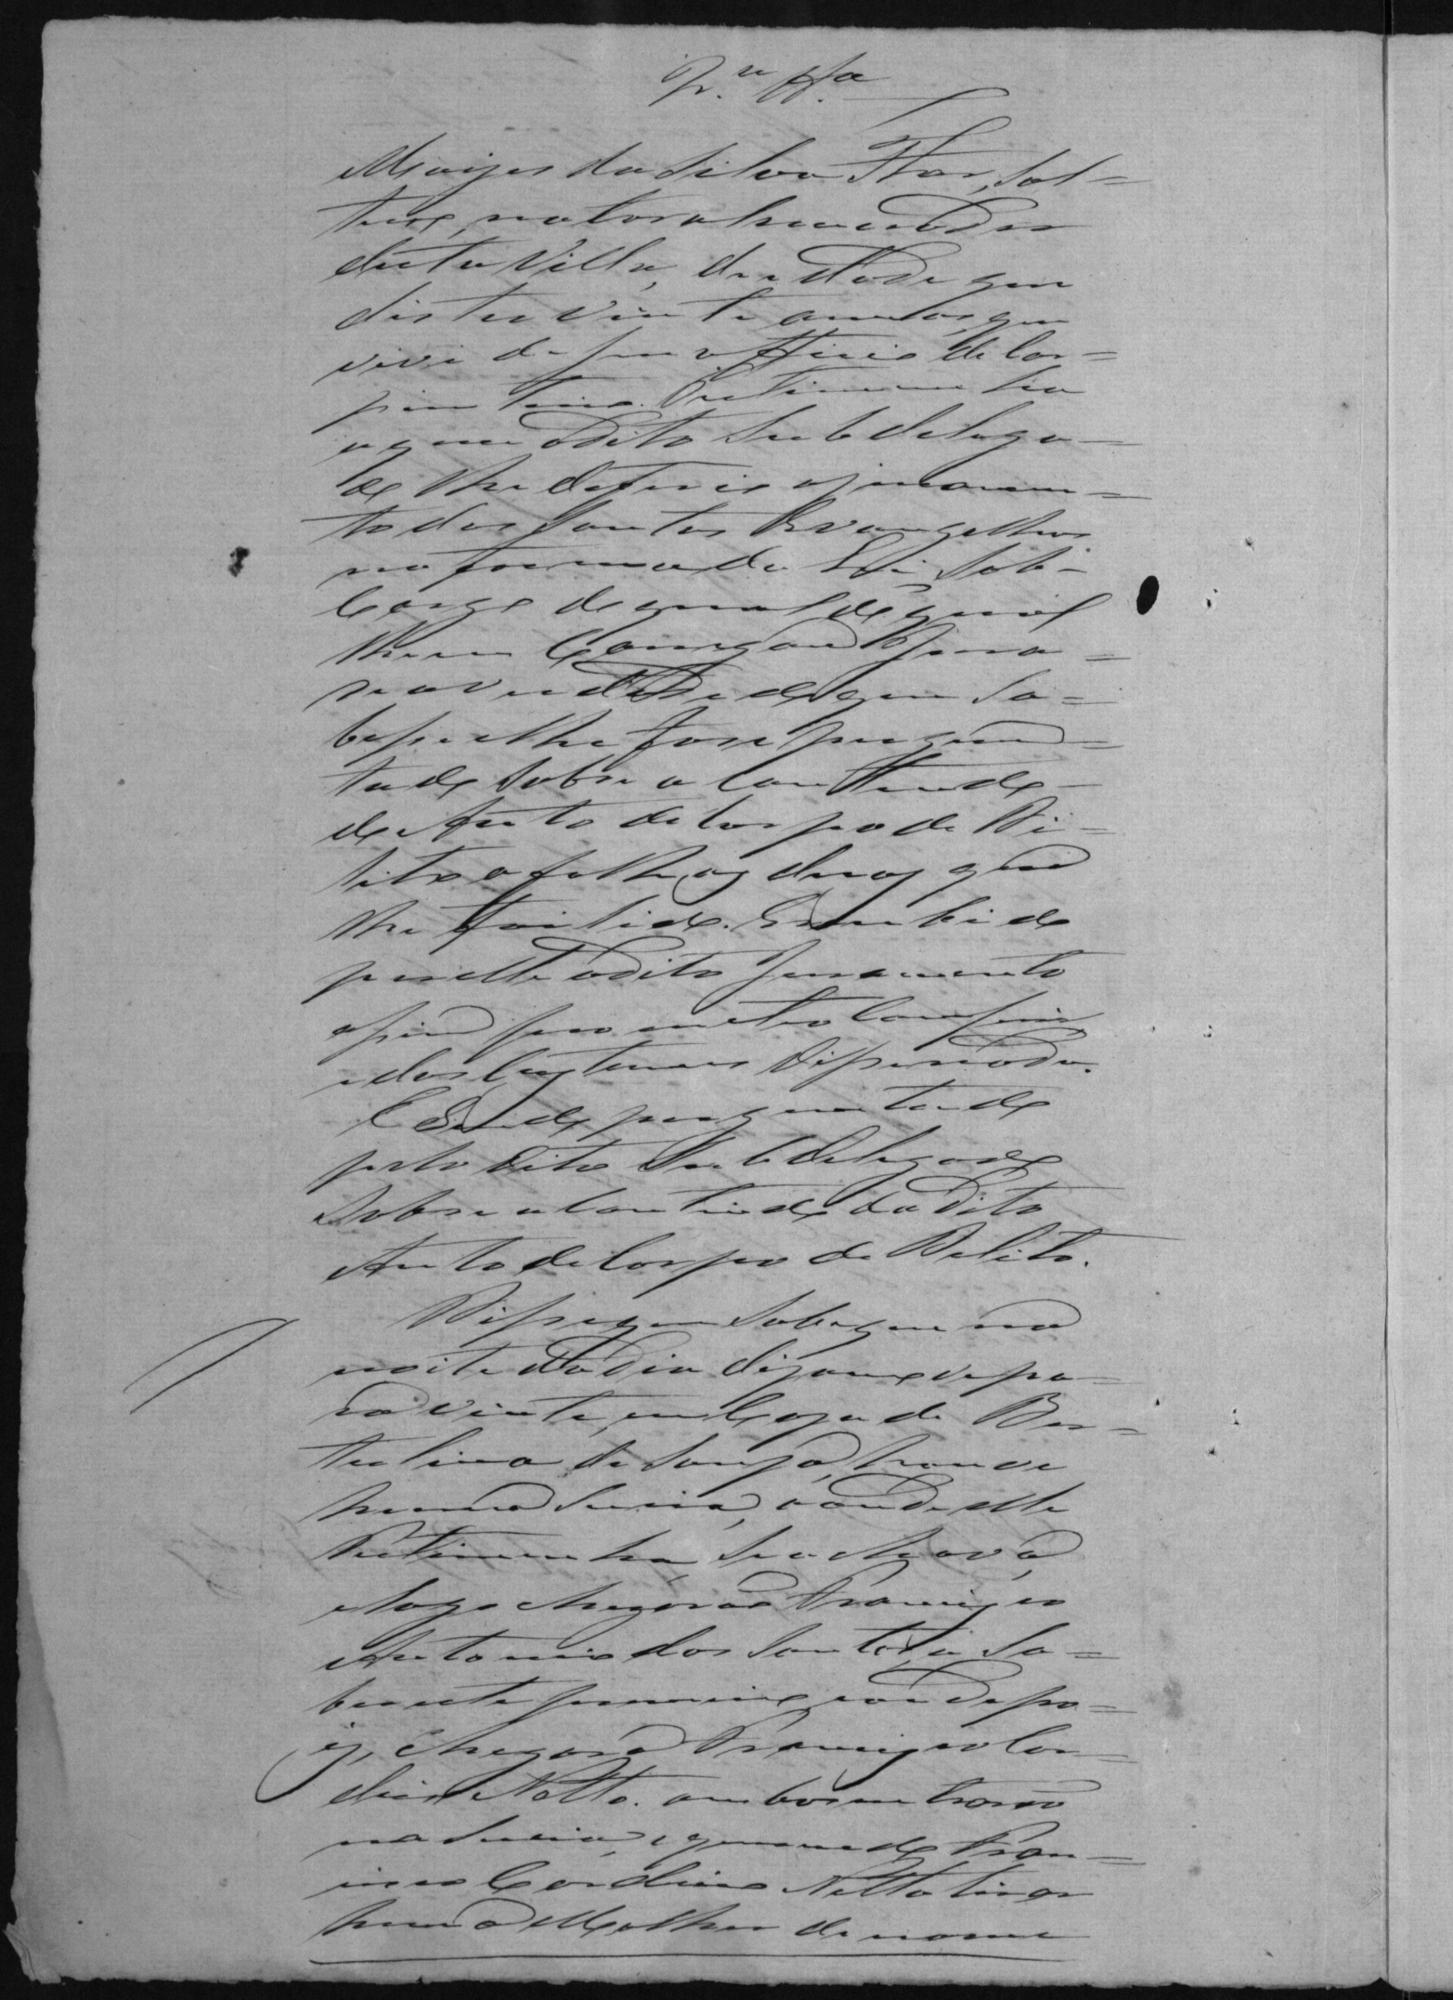 Moizes da Silva Flor, Sol=
teiro, natural e morador
desta Villa, de idade que
disse ter vinte annos, que
vive de seu officio de Car=
pinteiro. Testimunha
a quem o dito Subdelega=
do lhe deferio o juramen=
to dos Santos Evangelhos
na forma da Lei, Sob-
Cargo do qual
lhe Encarregou Jura-
se a verdade do que Sou=
besse e lhe fosse pergun=
tado Sobre o Contheudo
do Auto de Corpo de De=
lito a folhas duas que
lhe foi lido. E recebido
por elle o dito Juramento
assim prometteo Cumprir
e dos Custumes disse nada.
E Sendo perguntado
pelo dito Subdelegado
Sobre o Contiudo do dito
Auto de Corpo de Delito.
Disse que Sabe que na
noite do dia dizanove pa-
ra vinte, em Caza de Ber=
tulina de Souza, houve
huma Sucia, aonde elle
Testimunha, Se achava,
e logo chegara Francisco
Antonio dos Santos,
primeiro e depo=
is, chegara Francisco Cor=
deiro Netto. ambos entrarão
na Sucia, e querendo Fran=
cisco Cordeiro Netto tirar
huma Molher de nome